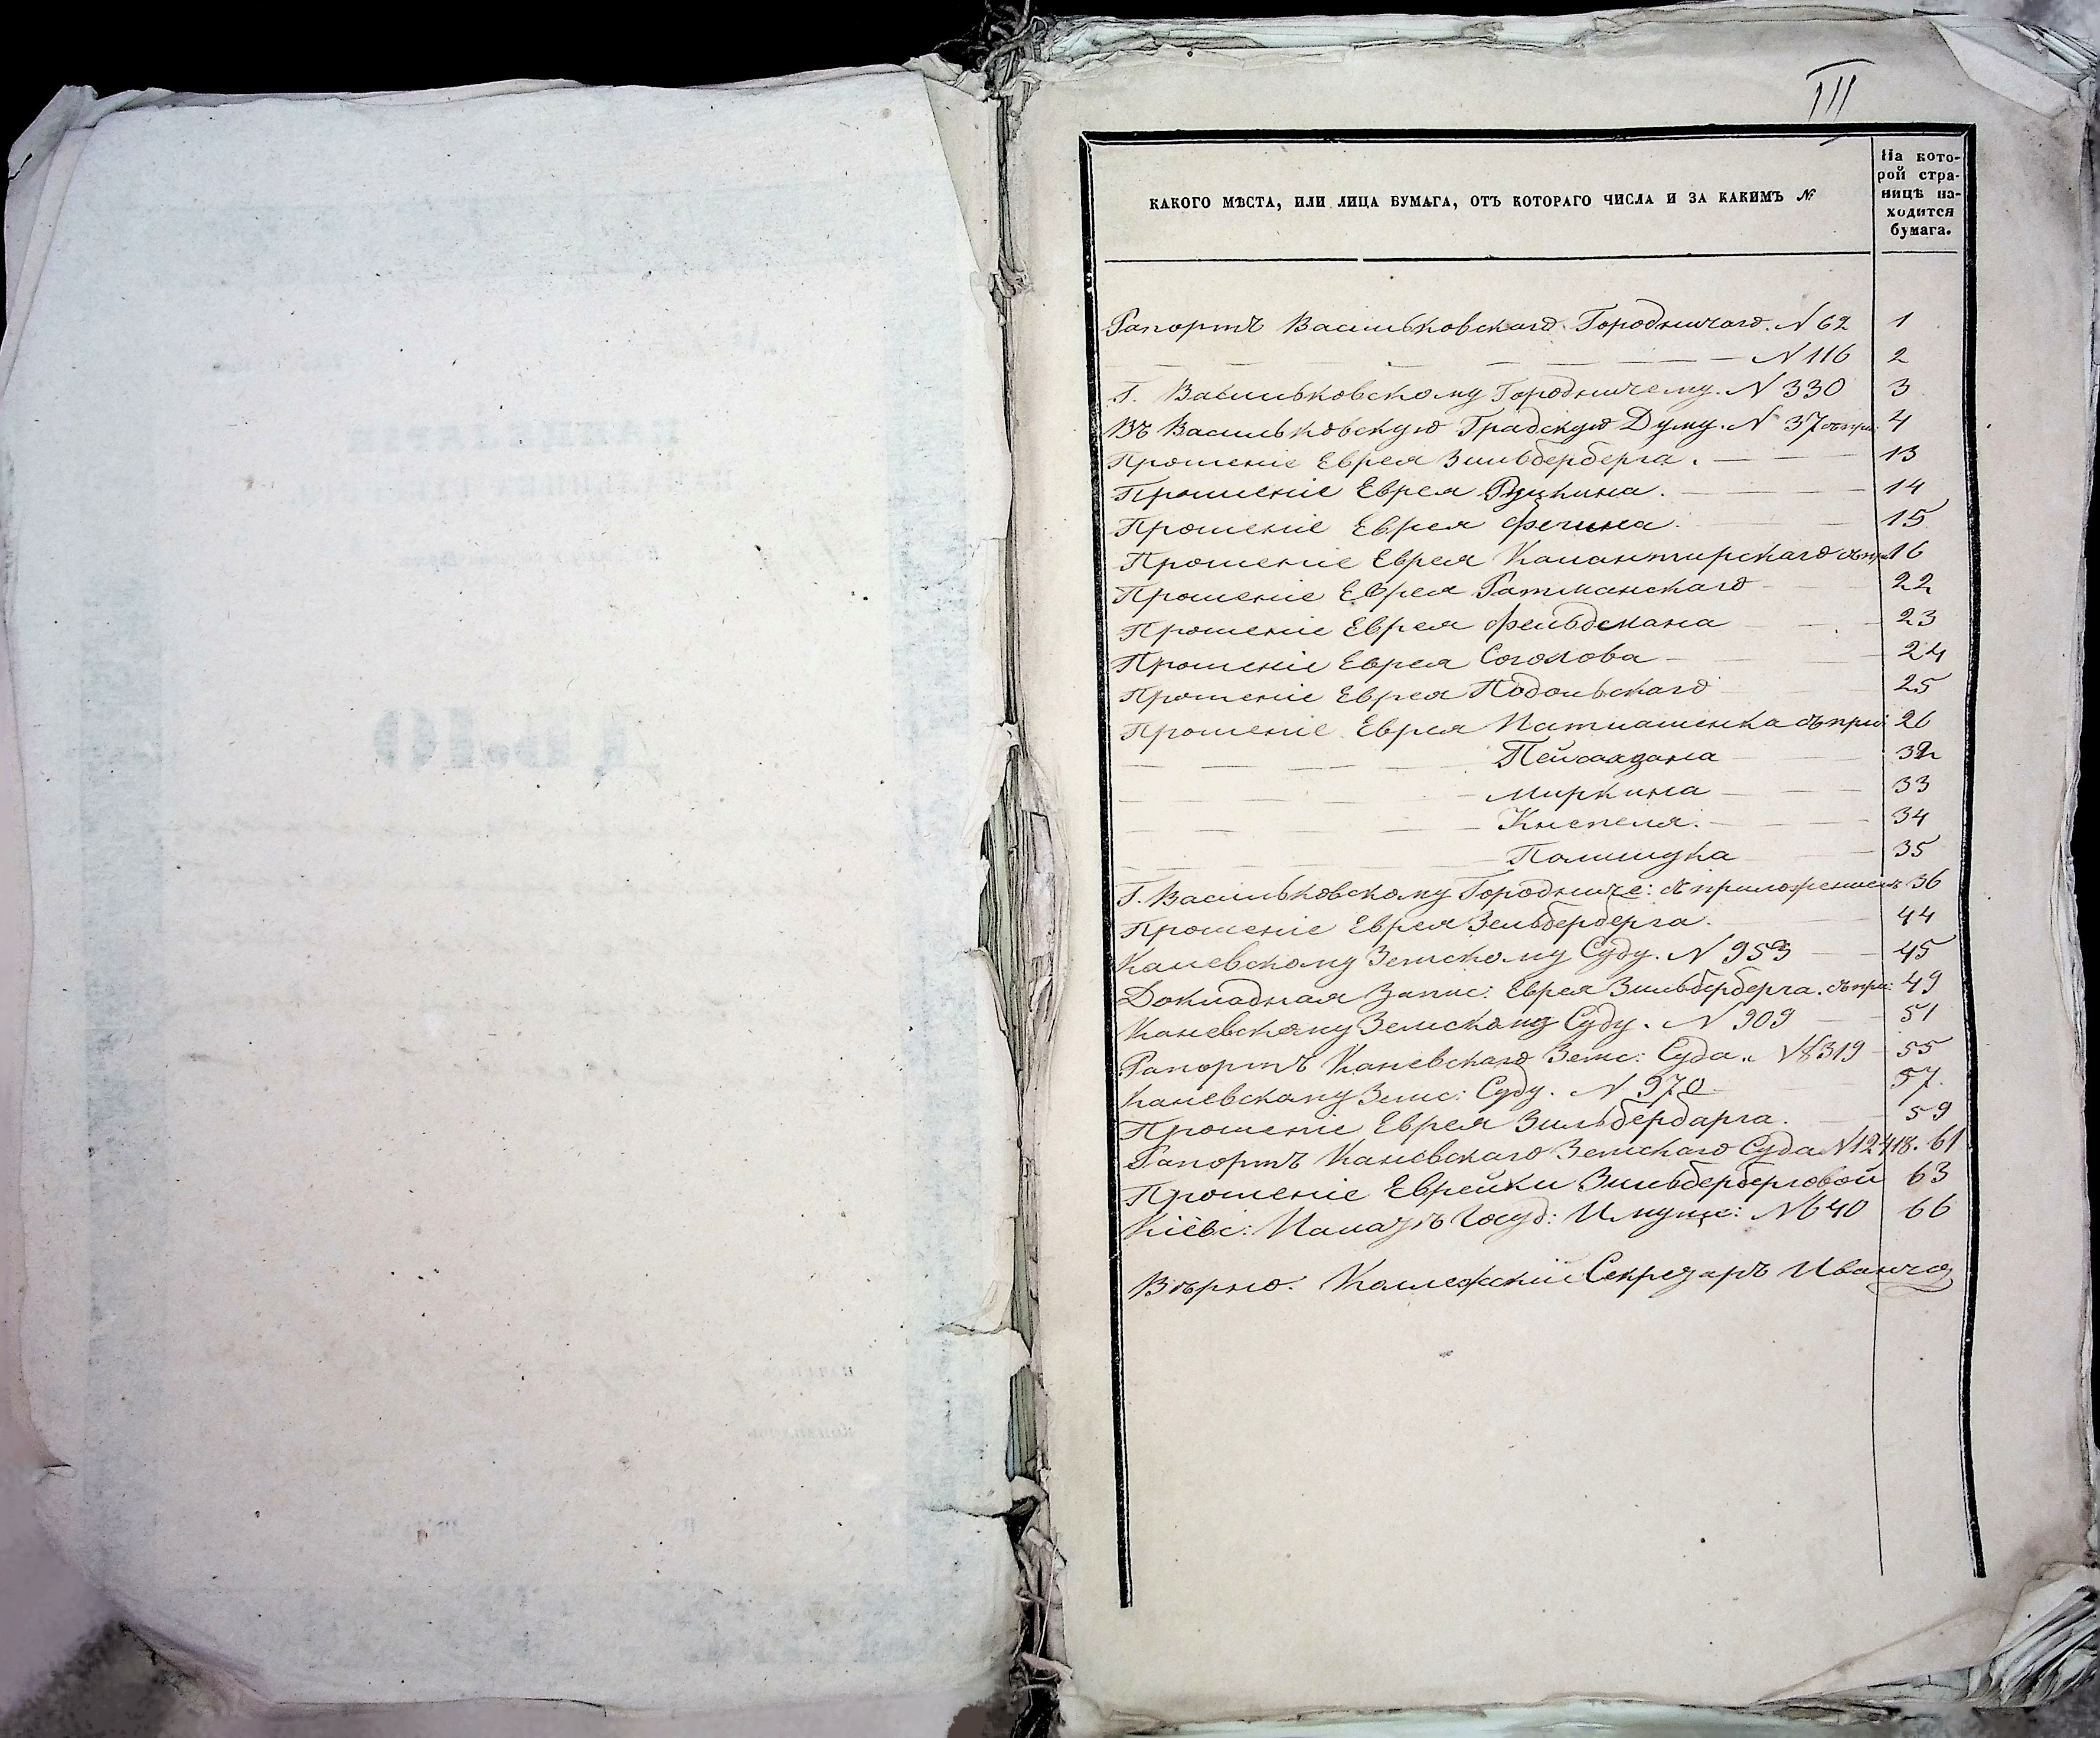 III
КАКОГО МѢСТА, ИЛИ ЛИЦА БУМАГА, ОТЪ КОТОРАГО ЧИСЛА И ЗА КАКИМЪ №
На кото-
рой стра-
ницѣ на-
ходится
бумага.
Рапортъ Васильковскаго Городничаго. № 62 1
— — — — — — № 116 2
Г. Васильковскому Городничему. № 330 3
Въ Васильковскую Градскую Думу. № 37 съ при: 4
Прошеніе Еврея Зильберберга. — — 13
Прошеніе Еврея — — 14
Прошеніе Еврея Фечина. — — 15
Прошеніе Еврея Калантирскаго съ пр: 16
Прошеніе Еврея Ратманскаго — 22
Прошеніе Еврея Фельдмана — — 23
Прошеніе Еврея Соголова — — 24
Прошеніе Еврея Подольскаго 25
Прошеніе Еврея съ при: 26
— — — — Пейсахзана — — 32
— — — — Миркина — — 33
— — — — Кнепеля. — — 34
— — — — Полищука — 35
Г. Васильковскому Городниче: съ приложеніемъ 36
Прошеніе Еврея Зельберберга. — 44
Каневскому Земскому Суду. № 953 — 45
Докладная Запис: Еврея Зильберберга. съ при: 49
Каневскому Земскому Суду. № 909 — 51
Рапортъ Каневскаго Земс: Суда. № 8319 — 55
Каневскому Земс: Суду. № 970 57.
Прошеніе Еврея Зильбербарга. — 59
Рапортъ Каневскаго Земскаго Суда № 12418. 61
Прошеніе Еврейки Зильберберговой 63
Кіевс: Палатѣ Госуд: Имущес: № 640 66
Вѣрно. Коллежскій Секретарь